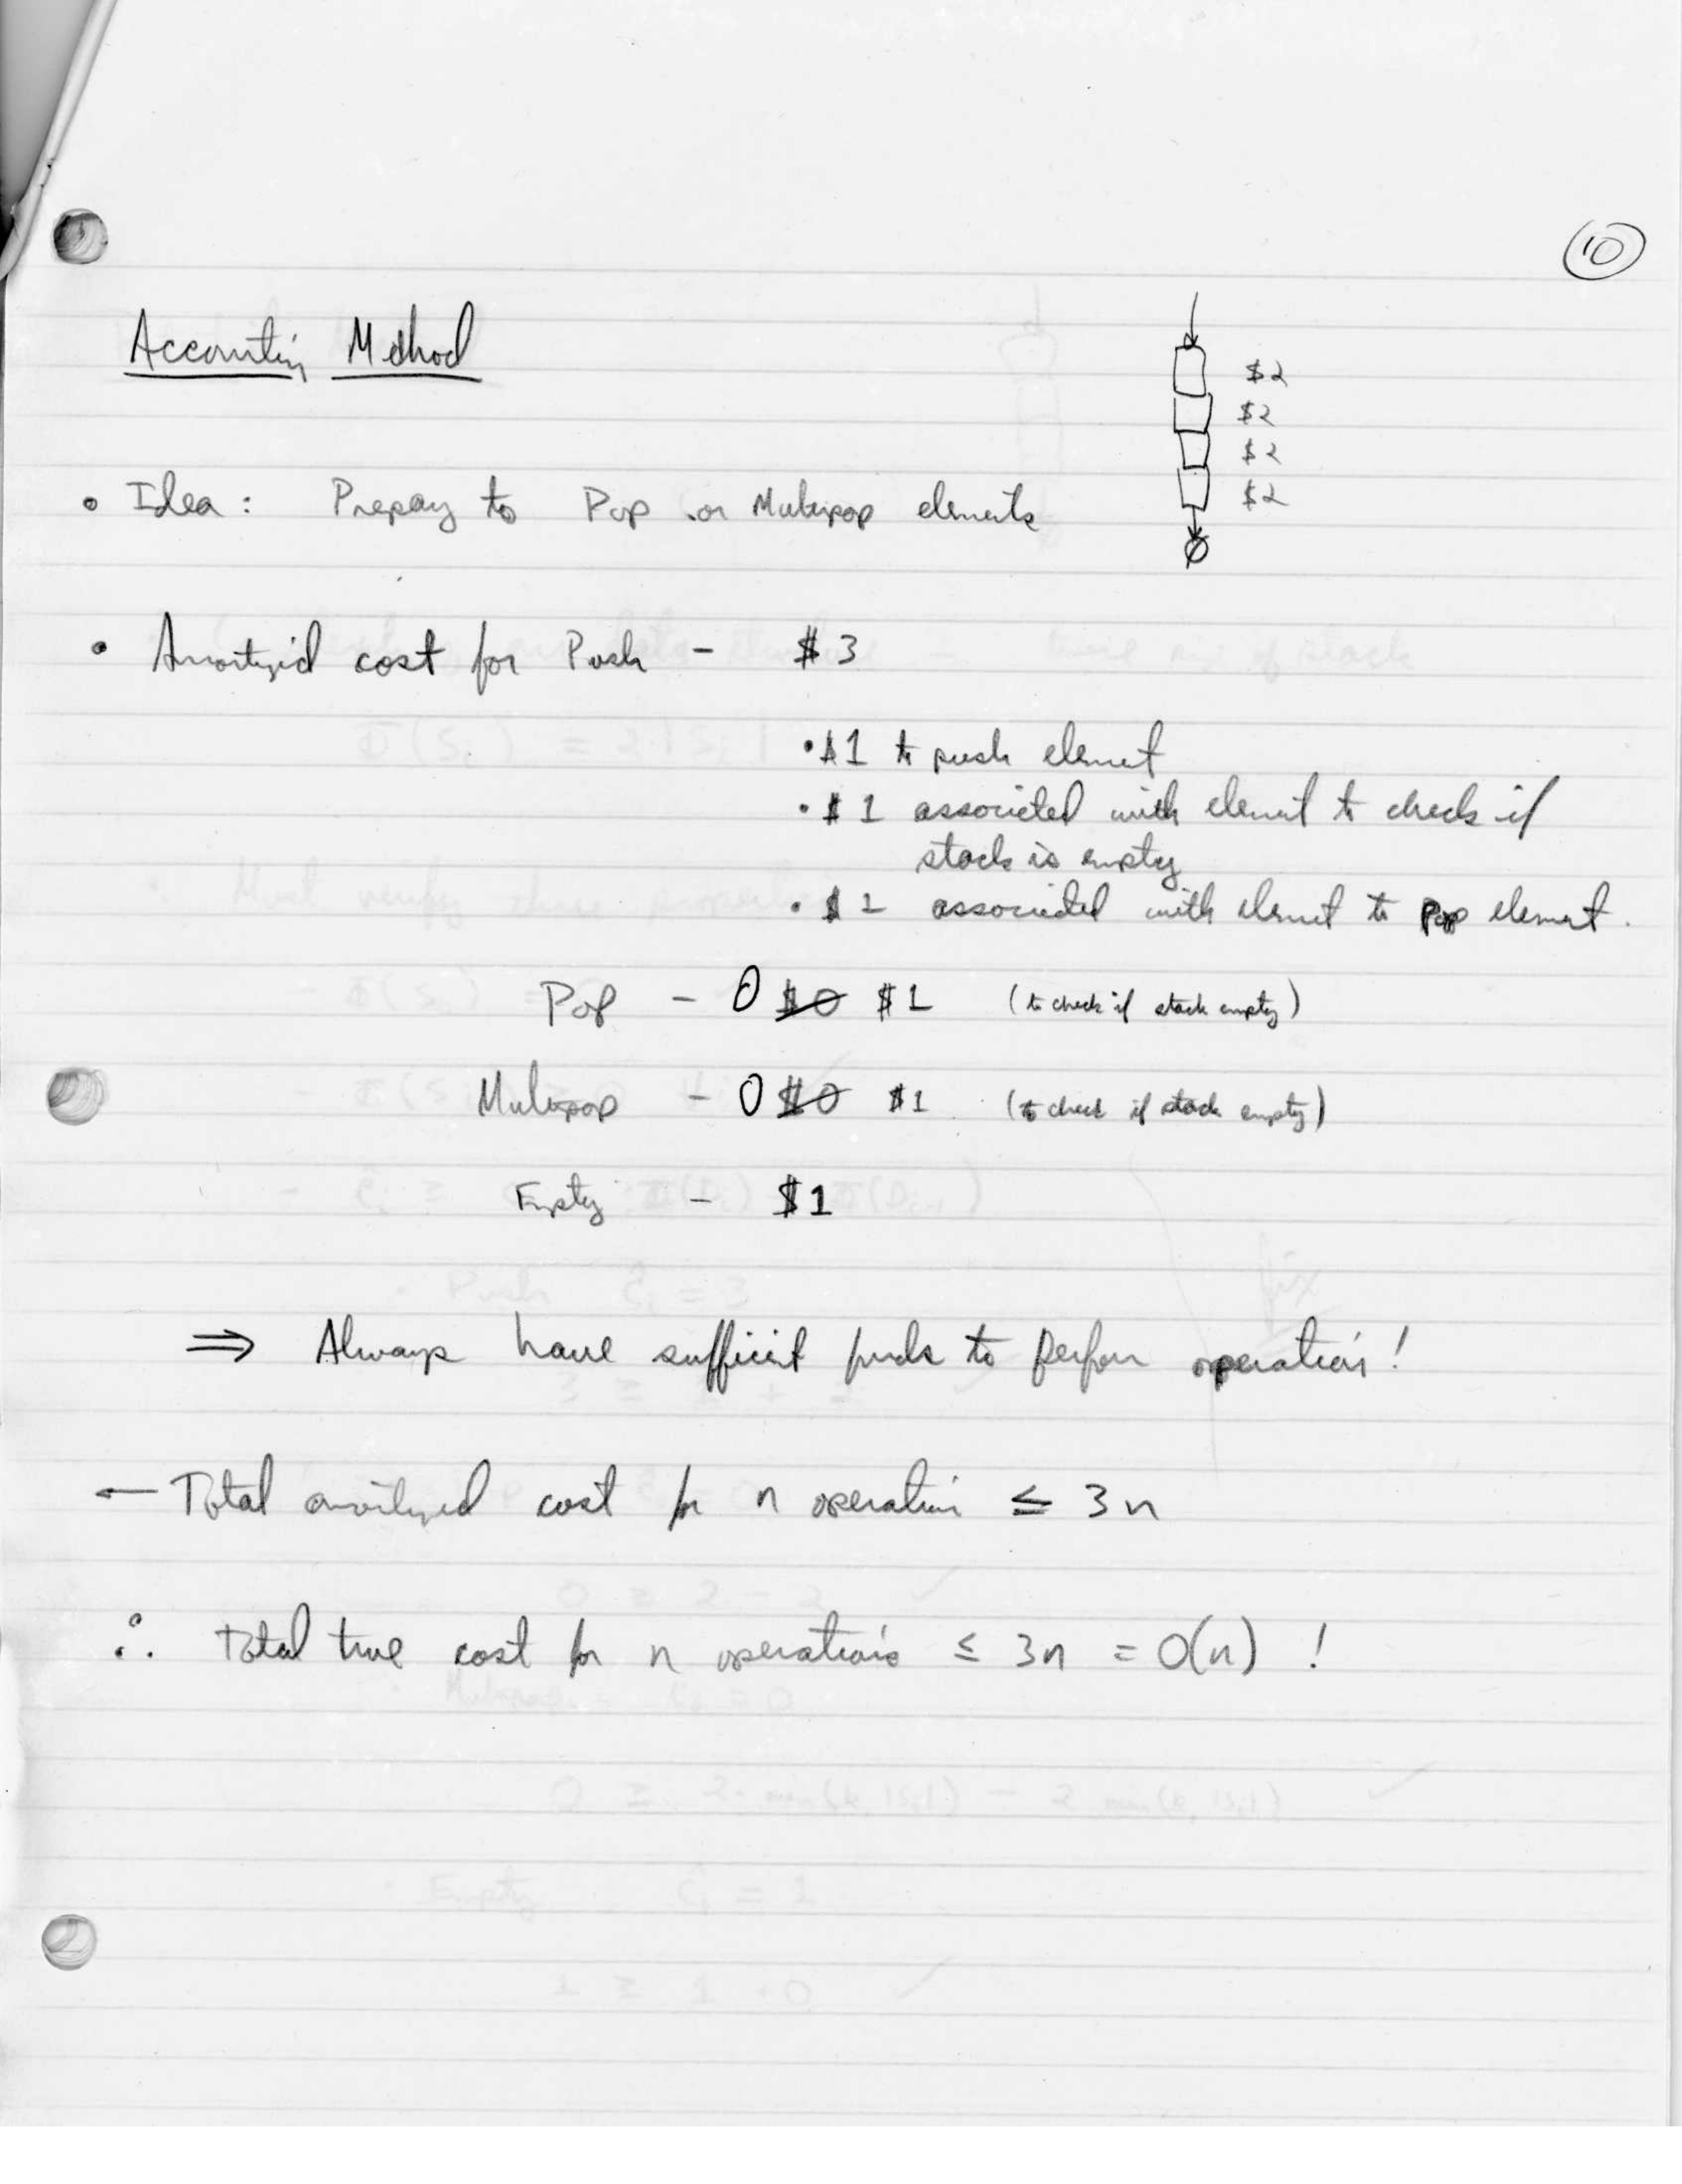 10
Accounting Method
$2
$2
$2
$2
• Idea : Prepay to Pop or Multipop elements
• Amortized cost for Push - $3
• $1 to push element
• $1 associated with element to check if
stack is empty
• $1 associated with element to Pop element.
Pop - 0 $0 $1 (to check if stack empty)
Multipop - 0 $0 $1 (to check if stack empty)
Empty - $1
⇒ Always have sufficient funds to perform operations!
- Total amortized cost for n operations ≤ 3n
∴ Total true cost for n operations ≤ 3n = O(n) !